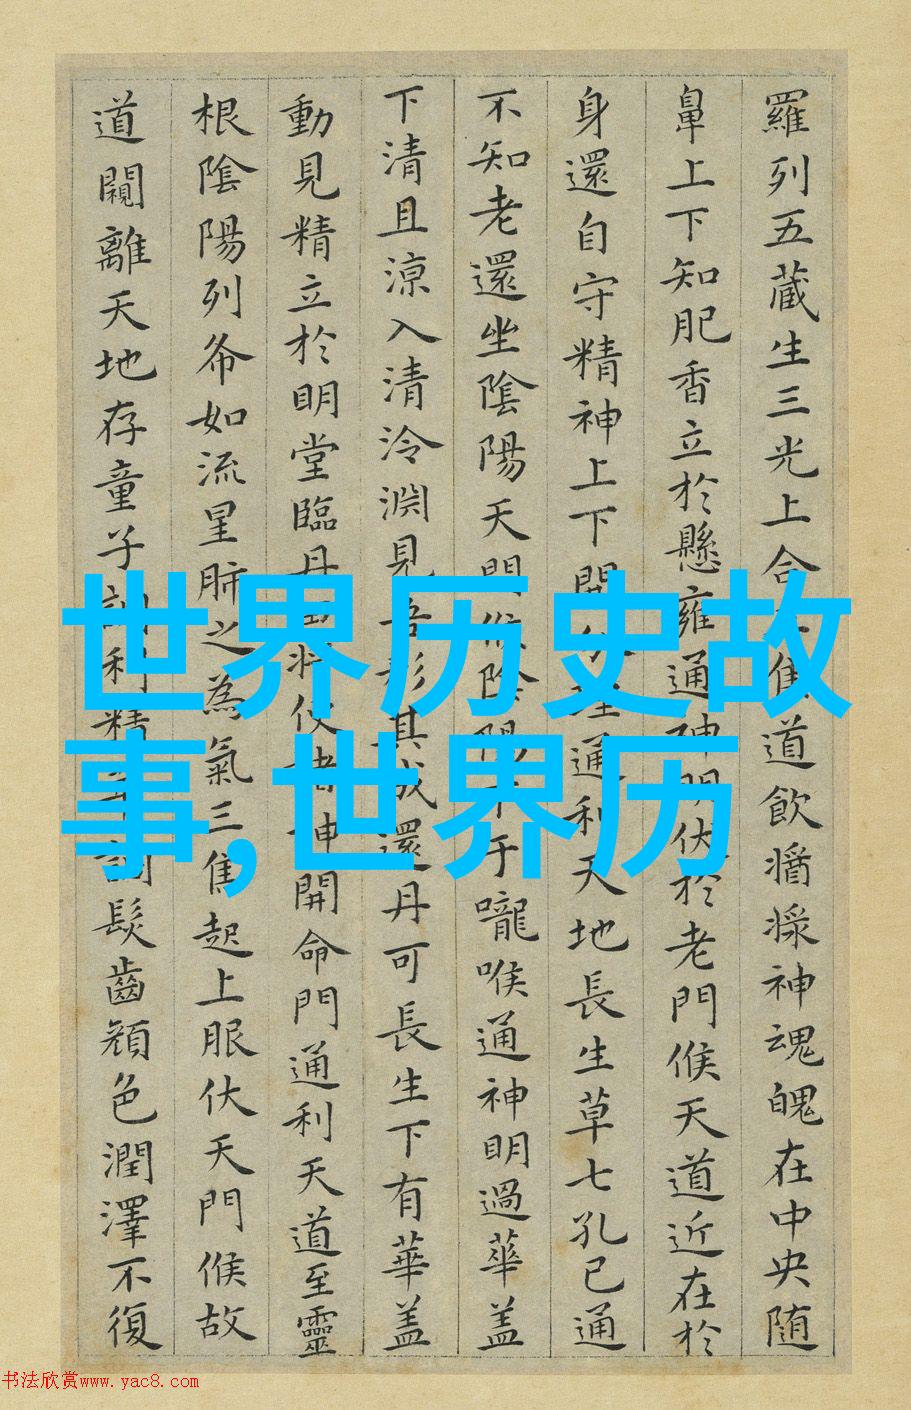 羅列五蔵生三光上合焦道飲醬漿神魂魄在中央随
鼻上下知肥香立於懸雍通神明伏於老門候天道近在於
身還自守精神上下開分理通利天地長生草七孔已通
不知老還坐陰陽天門候陰陽下于嚨喉通神明過華盖
下清且涼入清泠淵見吾形其成還丹可長生下有華盖
動見精立於明堂臨丹田将使諸神開命門通利天道至靈
根陰陽列布如流星肺之為氣三焦起上服伏天門候故
道闚離天地存童子調利精華調髮齒顔色潤澤不復
世界历史故
事,世界历
书法欣赏www.yac8.com